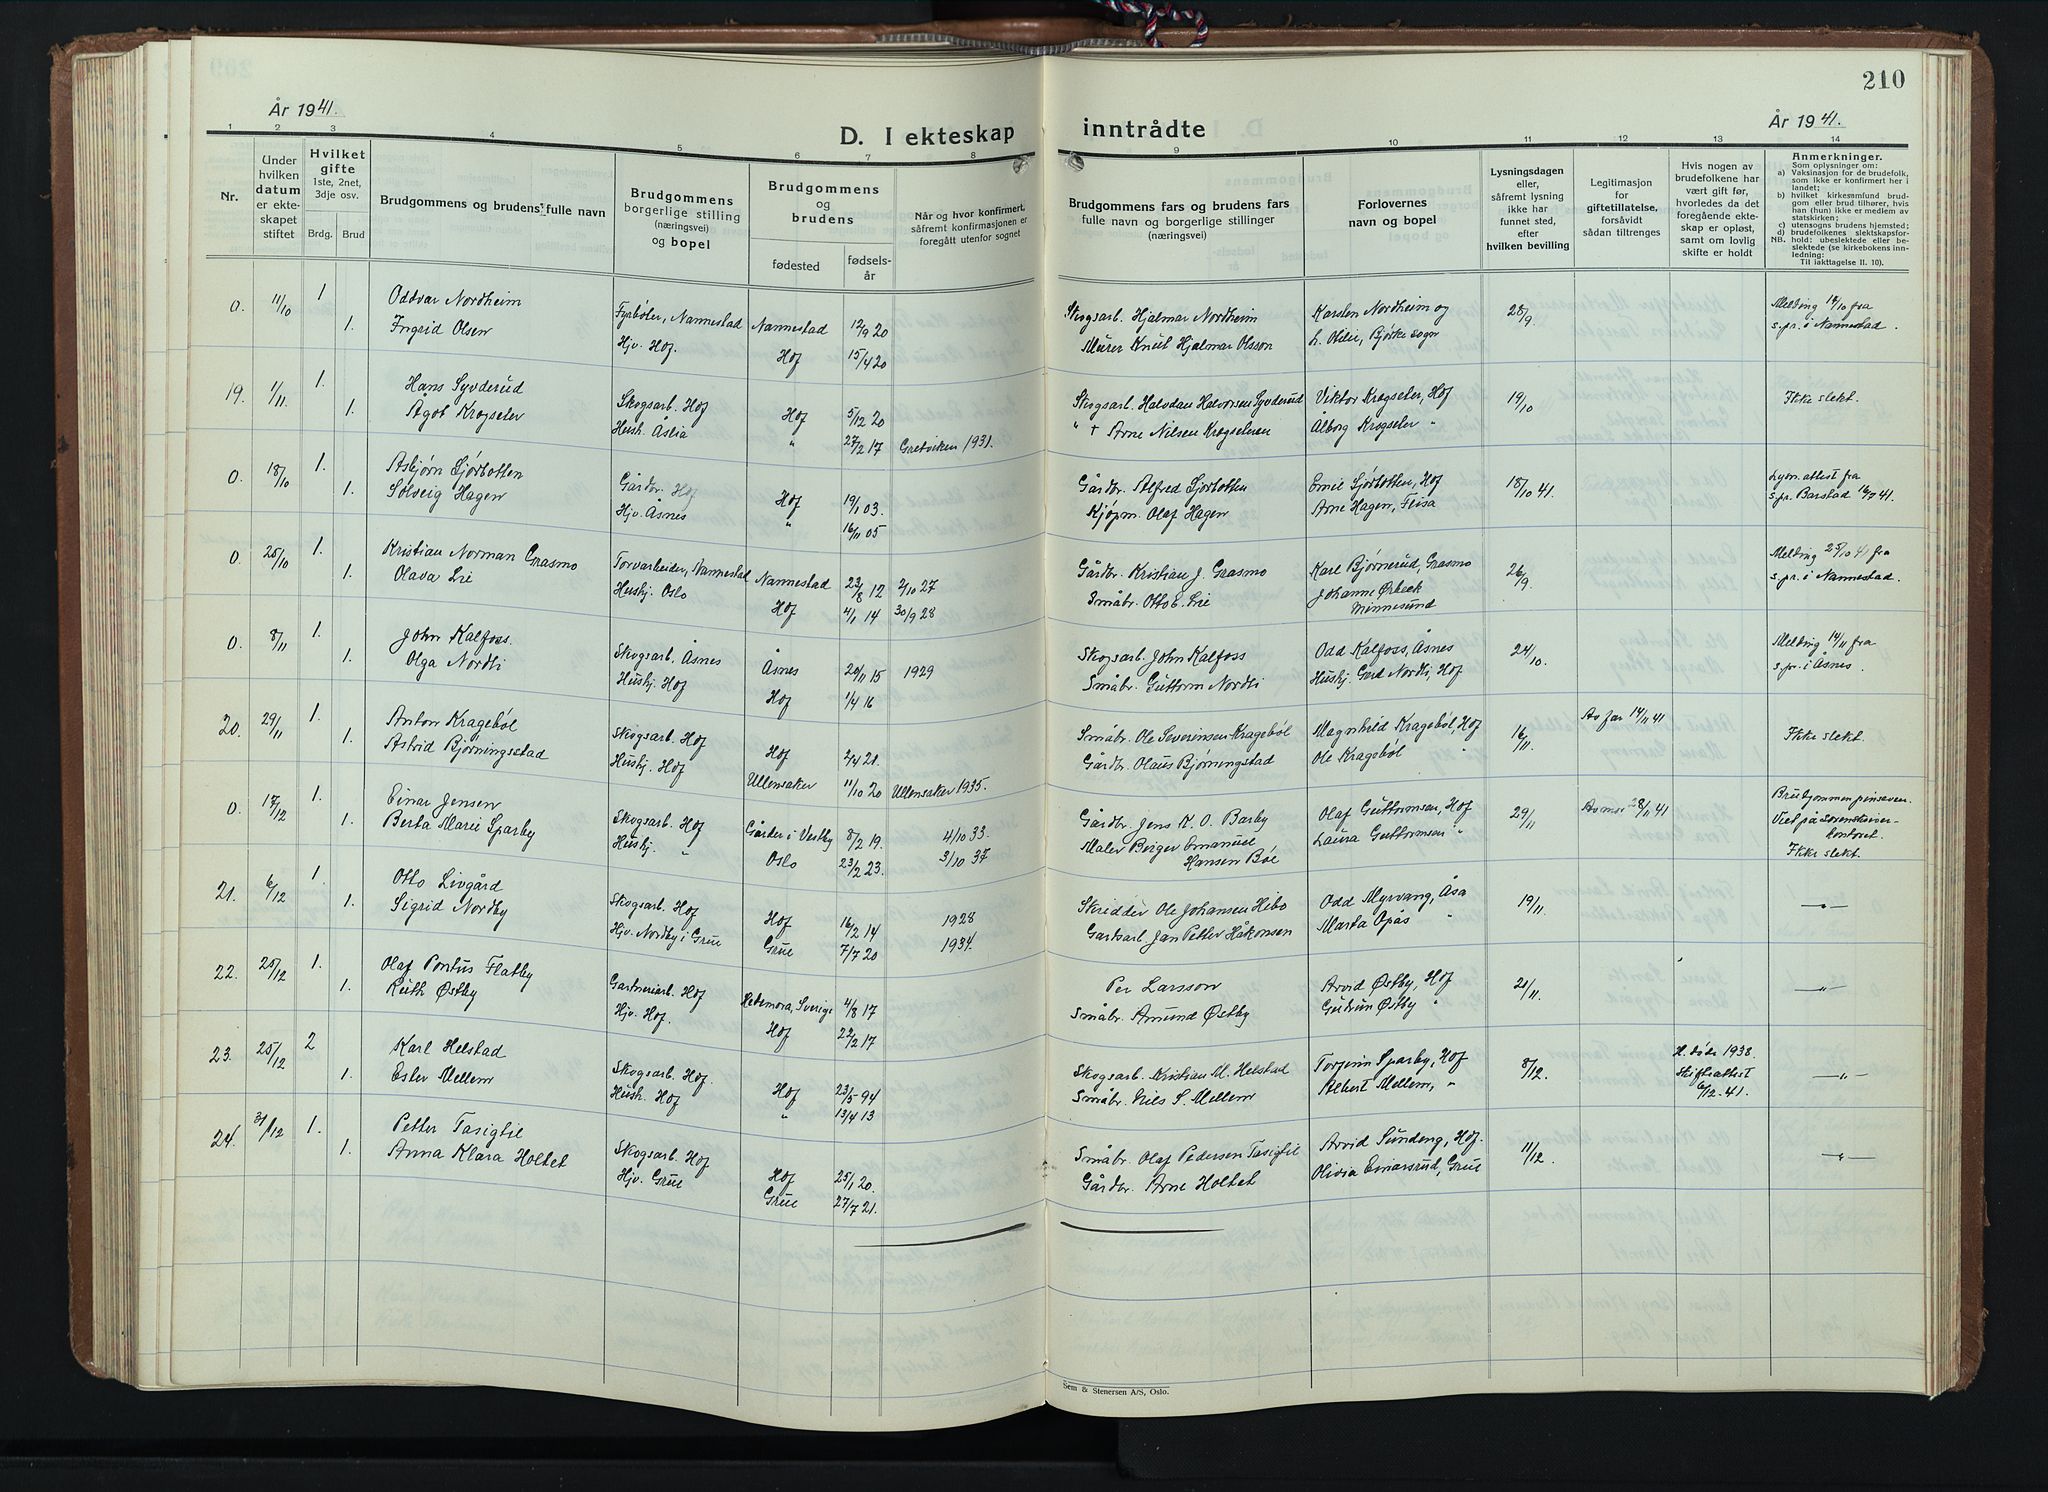 210
År 1941.
D. I ekteskap inntrådte
År 1941.
1 2 3 4 5 6 7 8 9 10 11 12 13 14
Nr.
Under hvilken datum er ekteskapet stiftet
Hvilket gifte 1ste, 2net, 3dje osv.
Brdg. Brud
Brudgommens og brudens fulle navn
Brudgommens borgerlige stilling (næringsvei) og bopel
Brudgommens og brudens
fødested fødselsår
Når og hvor konfirmert, såfremt konfirmasjonen er foregått utenfor sognet
Brudgommens fars og brudens fars fulle navn og borgerlige stillinger (næringsvei)
Forlovernes navn og bopel
Lysningsdagen eller, såfremt lysning ikke har funnet sted, efter hvilken bevilling
Legitimasjon for giftetillatelse, forsåvidt sådan tiltrenges
Hvis nogen av brudefolkene har vært gift før, hvorledes da det foregående ekteskap er opløst, samt om lovlig skifte er holdt
Anmerkninger.
Som oplysninger om:
a) Vaksinasjon for de brudefolk, som ikke er konfirmert her i landet;
b) hvilket kirkesamfund brudgom eller brud tilhører, hvis han (hun) ikke er medlem av statskirken;
c) utensogns brudens hjemsted;
d) brudefolkenes slektskapsforhold: ubeslektede eller beslektede (se kirkebokens innledning:
NB.
Til iakttagelse II. 10).
0. 11/10 1 Oddvar Nordheim Fyrbøter, Nannestad Nannestad 12/9 20 Skogsarb. Hjalmar Nordheim Karsten Nordheim og 28/9 Melding 14/10 fra
1. Ingrid Olsen Hjv. Hof. Hof 15/4 20 Murer Knut Hjalmar Olsson Bjørke sogn s.pr. i Nannestad.
19. 1/11 1. Hans Syverud Skogsarb. Hof Hof 5/12 20 Skogsarb. Halvdan Halvorsen Syverud Viktor Krogseter, Hof 19/10 Ikke slekt.
1. Ågot Krogseter Hush. Aslia " 27/2 17 Gretviken 1931. " + Arne Nilsen Krogseter Ålborg Krogseter "
0. 18/10 1. Asbjørn Sjørbotten Gårdbr. Hof Hof 19/1 03. Gårdbr. Alfred Sjørbotten Emil Sjørbotten, Hof 18/10 41. Lysn.attest fra
1. Solveig Hagen Hjv. Åsnes " 16/11 05 Kjøpm. Olaf Hagen Arne Hagen, Feisa s.pr. Barstad 16/7 41.
0. 25/10 1. Kristian Norman Grasmo Torvarbeider, Nannestad Nannestad 23/8 12 2/10 27 Gårdbr. Kristian J. Grasmo Karl Bjørnerud, Grasmo 26/9 Melding 25/10 41 fra
1. Olava Lie Hushj. Oslo Hof 4/1 14 30/9 28 Småbr. Otto E. Lie Johanne Ørbeck Minnesund s.pr. i Nannestad.
0. 8/11 1. John Kalfoss. Skogsarb. Åsnes Åsnes 20/11 15 1929 Skogsarb. John Kalfoss Odd Kalfoss, Åsnes 24/10. Melding 14/11 fra
1. Olga Nordli Hushj. Hof Hof 1/4 16 Småbr. Guttorm Nordli Hushj. Gerd Nordli, Hof s.pr. i Åsnes.
20. 29/11 1. Anton Kragebøl Skogsarb. Hof Hof 2/4 21. Småbr. Ole Severinsen Kragebøl Magnhild Kragebøl, Hof 16/11 Av far 14/11 41 Ikke slekt.
1. Astrid Bjørningsstad Hushj. Hof Ullensaker 11/10 20 Ullensaker 1935. Gårdbr. Olaus Bjørningstad Ole Kragebøl "
0. 17/12 1. Einar Jensen Skogsarb. Hof Gårder i Vestby 8/2 19. 4/10 33. Gårdbr. Jens K. O. Barby Olaf Guttormsen, Hof 29/11 Av mor 28/11 41 Brudgommen pinseven.
1. Berta Marie Sparby Hushj. " Oslo 23/2 23. 3/10 37 Maler Berger Emanuel Hansen Bøe Laura Guttormsen " Viet på Sorenskriverkontoret. Ikke slekt.
21. 6/12 1. Otto Livgård Skogsarb. Hof Hof 16/2 14 1928 Skredder Ole Johansen Hebo Odd Myrvang, Åsa 19/11 — " —
1. Sigrid Nordby Hjv. Nordby i Grue Grue 7/7 20 1934. Gartarb. Jan Petter Håkonsen Marta Opås "
22. 25/12 1. Olaf Pontus Flatby Gartneriarb. Hof Hedemora, Sverige 4/8 17 Per Larsson Arvid Østby, Hof 21/11. — " —
1. Ruth Østby Hjv. Hof. Hof 22/2 17 Småbr. Amund Østby Gudrun Østby "
23. 25/12 2 Karl Helstad Skogsarb. Hof. Hof 23/5 94 Skogsarb. Kristian M. Helstad Torfinn Sparby, Hof 8/12. H. døde 1938. Skifteattest 6/12-41. — " —
1. Ester Mellem Hush. Hof " 13/4 13 Småbr. Nils S. Mellem Albert Mellem, "
24. 31/12 1. Petter Tasigtil Skogsarb. Hof Hof 25/1 20. Småbr. Olaf Pedersen Tasigtil Arvid Sundeng, Hof. 11/12. — " —
1. Anna Klara Holtet Hjv. Grue Grue 27/7 21. Gårdbr. Arne Holtet Olivia Einarsrud, Grue
Sem & Stenersen A/S, Oslo.